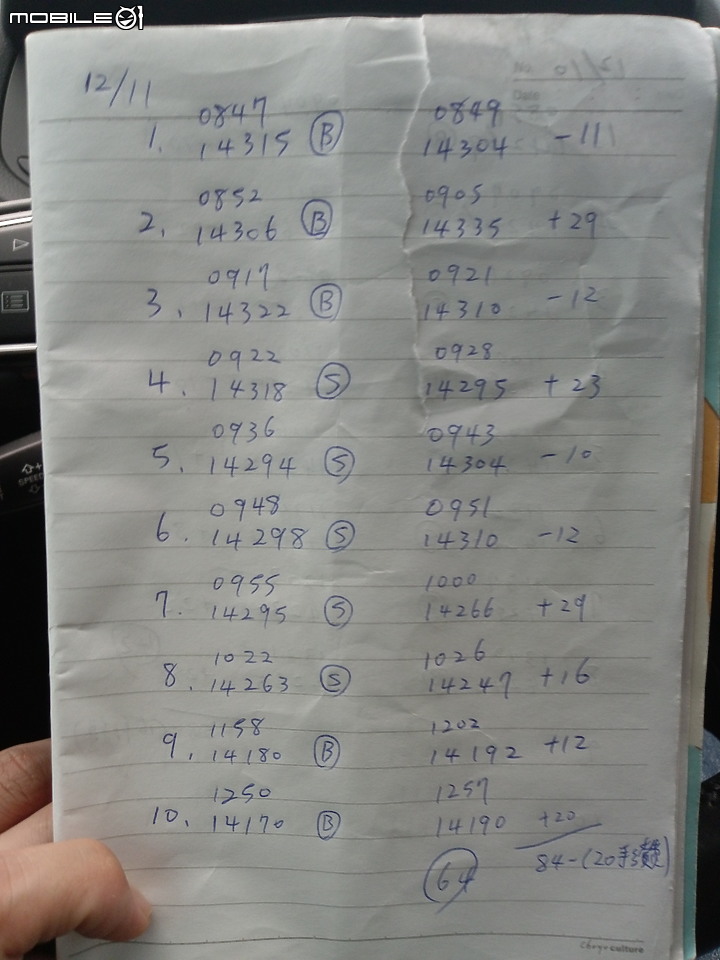 MOBILE01
No. 01/21
Date
12/11
0847 0849
1. 14315 B 14304 -11
0852 0905
2. 14306 B 14335 +29
0917 0921
3. 14322 B 14310 -12
0922 0928
4. 14318 S 14295 +23
0936 0943
5. 14294 S 14304 -10
0948 0951
6. 14298 S 14310 -12
0955 1000
7. 14295 S 14266 +29
1022 1026
8. 14263 S 14247 +16
1158 1202
9. 14180 B 14192 +12
1250 1257
10. 14170 B 14190 +20
84-(20手續費)
64